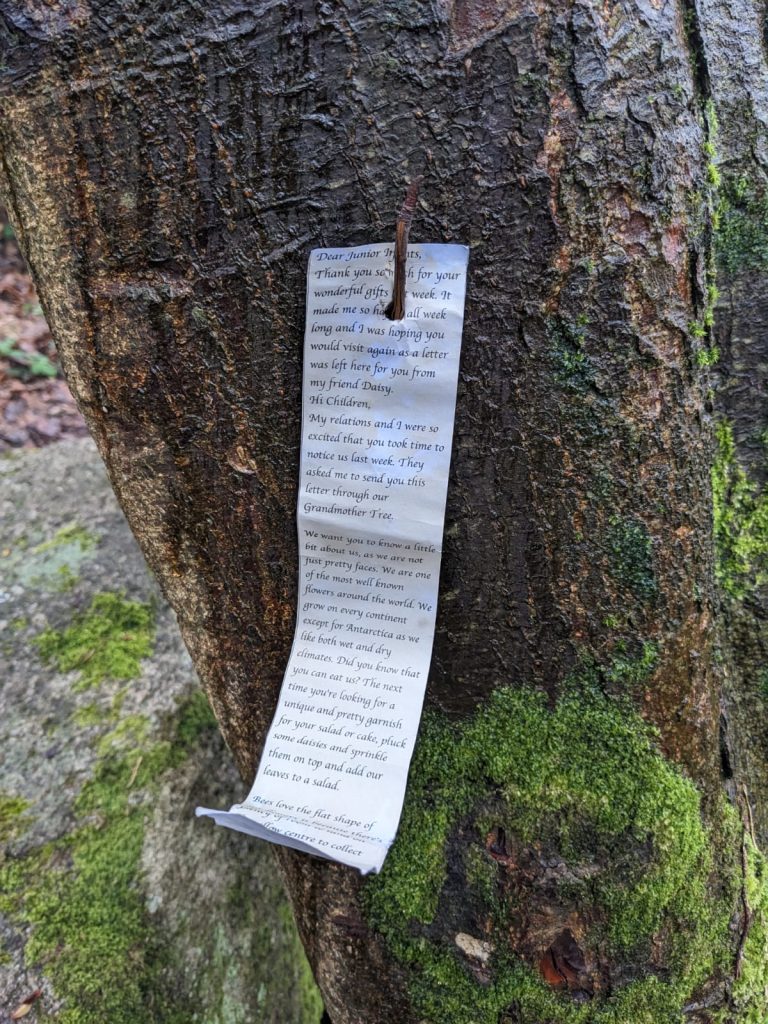 Dear Junior
Thank you for your
wonderful gifts week. It
made me so all week
long and I was hoping you
would visit again as a letter
was left here for you from
my friend Daisy.
Hi Children,
My relations and I were so
excited that you took time to
notice us last week. They
asked me to send you this
letter through our
Grandmother Tree.
We want you to know a little
bit about us, as we are not
just pretty faces. We are one
of the most well known
flowers around the world. We
grow on every continent
except for Antarctica as we
like both wet and dry
climates. Did you know that
you can eat us? The next
time you're looking for a
unique and pretty garnish
for your salad or cake, pluck
some daisies and sprinkle
them on top and add our
leaves to a salad.
Bees love the flat shape of
because there's
centre to collect